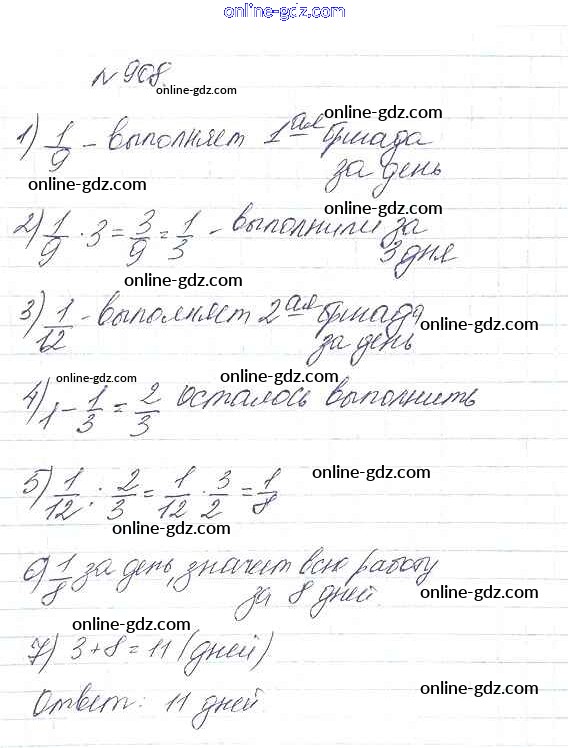 online-gdz.com
N 908.
online-gdz.com
online-gdz.com
1) 1/9 - выполняет 1ая бригада
за день
online-gdz.com
online-gdz.com
2) 1/9 · 3 = 3/9 = 1/3 - выполнили за
3 дня
online-gdz.com
3) 1/12 - выполняет 2ая бригада
за день
online-gdz.com
online-gdz.com
online-gdz.com
4) 1 - 1/3 = 2/3 осталось выполнить
online-gdz.com
5) 1/12 : 2/3 = 1/12 · 3/2 = 1/8
online-gdz.com
6) 1/8 за день, значит всю работу
за 8 дней.
online-gdz.com
online-gdz.com
7) 3 + 8 = 11 (дней)
Ответ: 11 дней
online-gdz.com
online-gdz.com